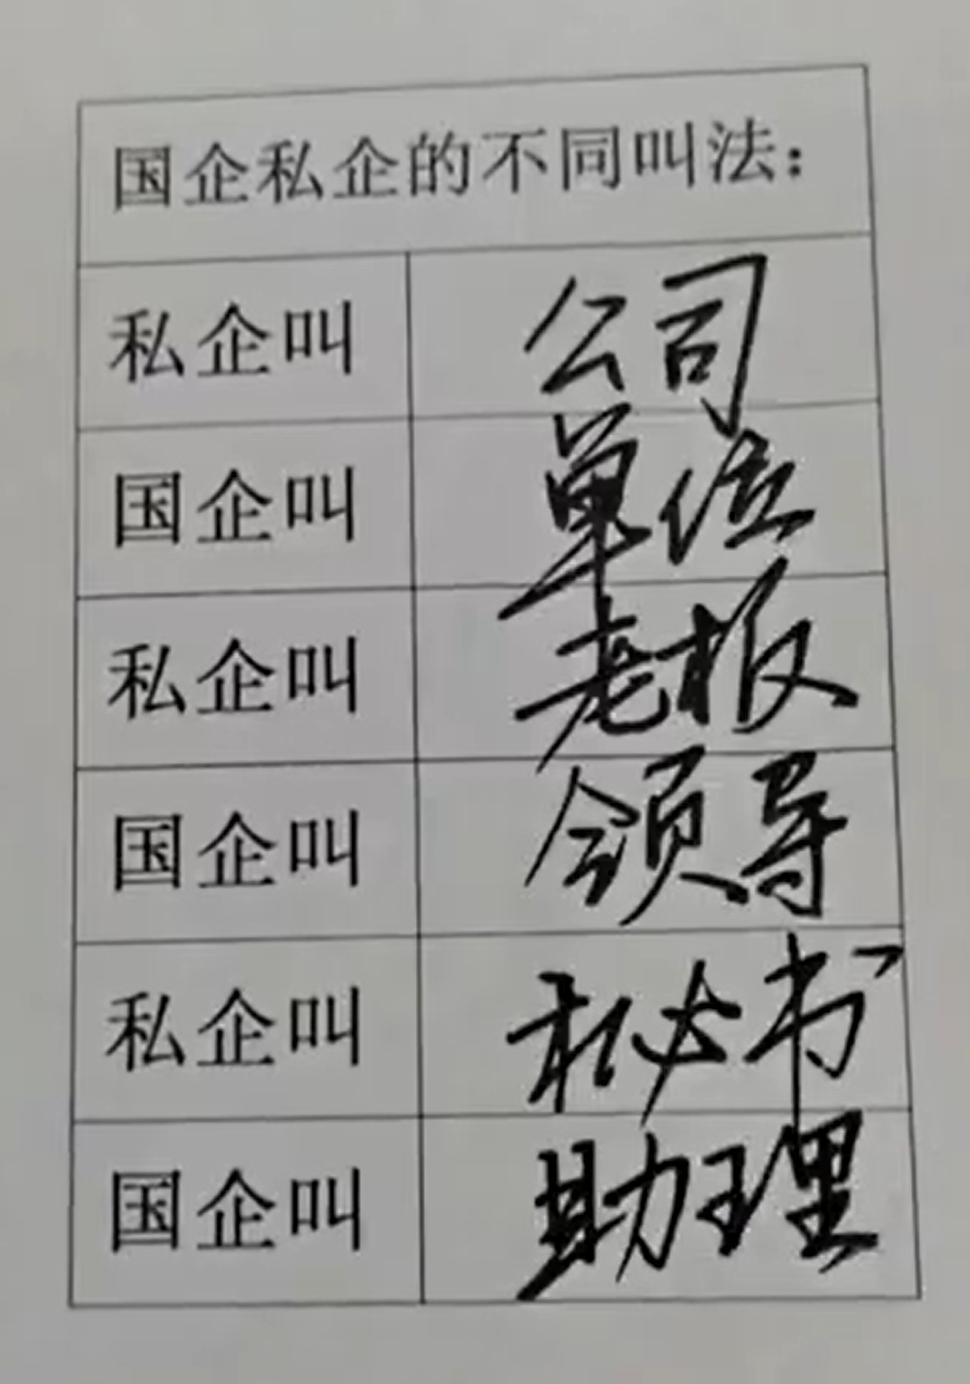 国企私企的不同叫法：
私企叫 公司
国企叫 单位
私企叫 老板
国企叫 领导
私企叫 秘书
国企叫 助理